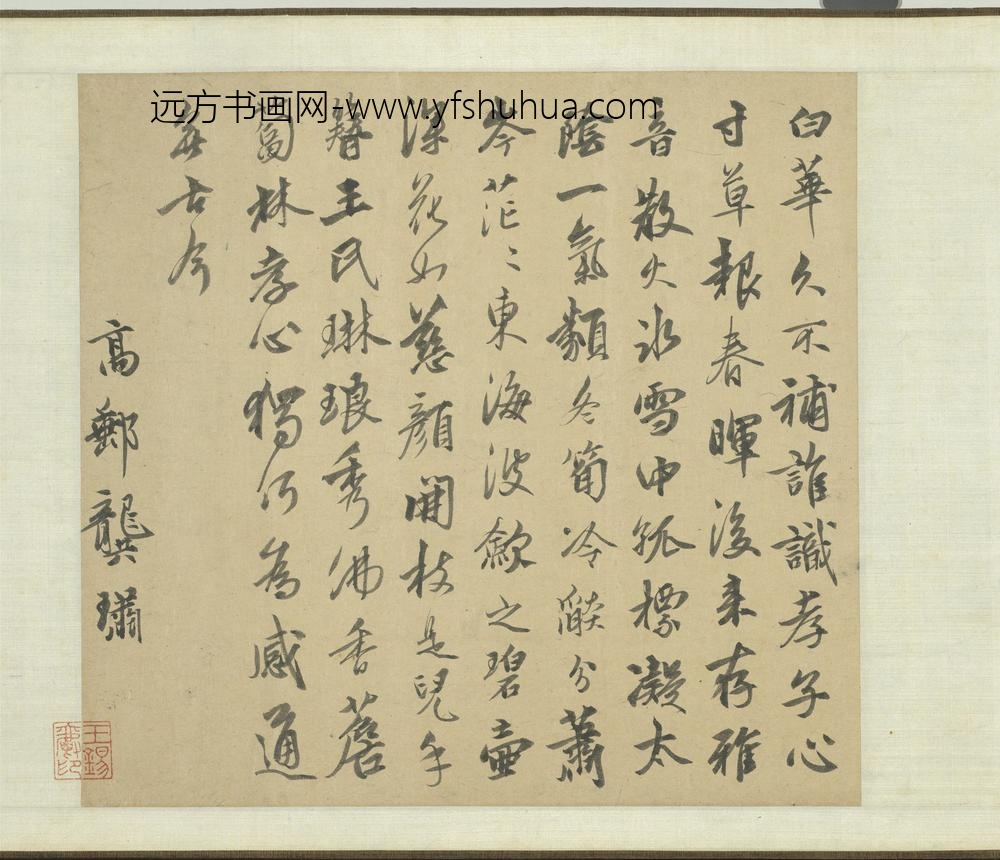 远方书画网-www.yfshuhua.com
白華久不補誰識孝子心
寸草報春暉後来存雅
音散火冰雪中孤標凝太
陰一氣類冬筍冷燄分蕭
岑茫〻東海波歛之碧壷
深花如慈顔開枝是兒手
簪王民琳琅秀佛香薝
蔔林孝心獨何為感通
無古今
高郵龔璛
王錫